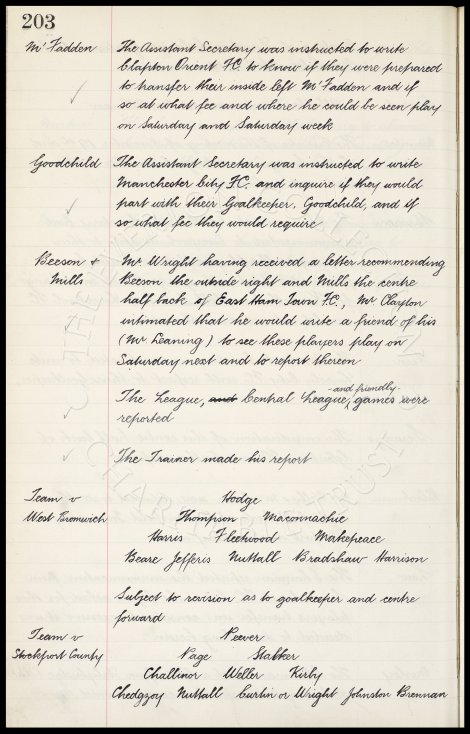 203
Mc Fadden The Assistant Secretary was instructed to write
Clapton Orient F.C. to know if they were prepared
to transfer their inside left Mc Fadden and if
so at what fee and where he could be seen play
on Saturday and Saturday week
Goodchild The Assistant Secretary was instructed to write
Manchester City F.C. and inquire if they would
part with their Goalkeeper, Goodchild, and if
so what fee they would require
Beeson & Mr Wright having received a letter recommending
Mills Beeson the outside right and Mills the centre
half back of East Ham Town F.C., Mr Clayton
intimated that he would write a friend of his
(Mr Leaning) to see these players play on
Saturday next and to report thereon
and friendly
The League, and Central League, games were
reported
The Trainer made his report
Team v Hodge
West Bromwich Thompson Maconnachie
Harris Fleetwood Makepeace
Beare Jefferis Nuttall Bradshaw Harrison
Subject to revision as to goalkeeper and centre
forward
Team v Peever
Stockport County Page Stalker
Challinor Weller Kirby
Chedgzoy Nuttall Curtin or Wright Johnston Brennan
CHARITABLE TRUST